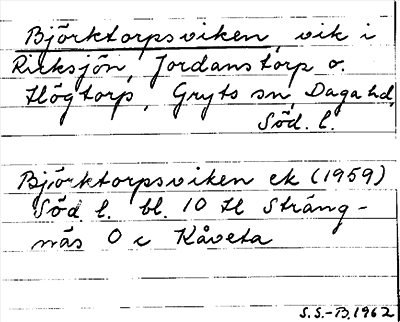 Björktorpsviken, vik i
Ricksjön, Jordanstorp o.
Högtorp, Gryts sn, Daga hd,
Söd. l.
Björktorpsviken ek (1959)
Söd l. bl. 10 H Sträng-
näs O c Kåveta
S.S.-B.1962